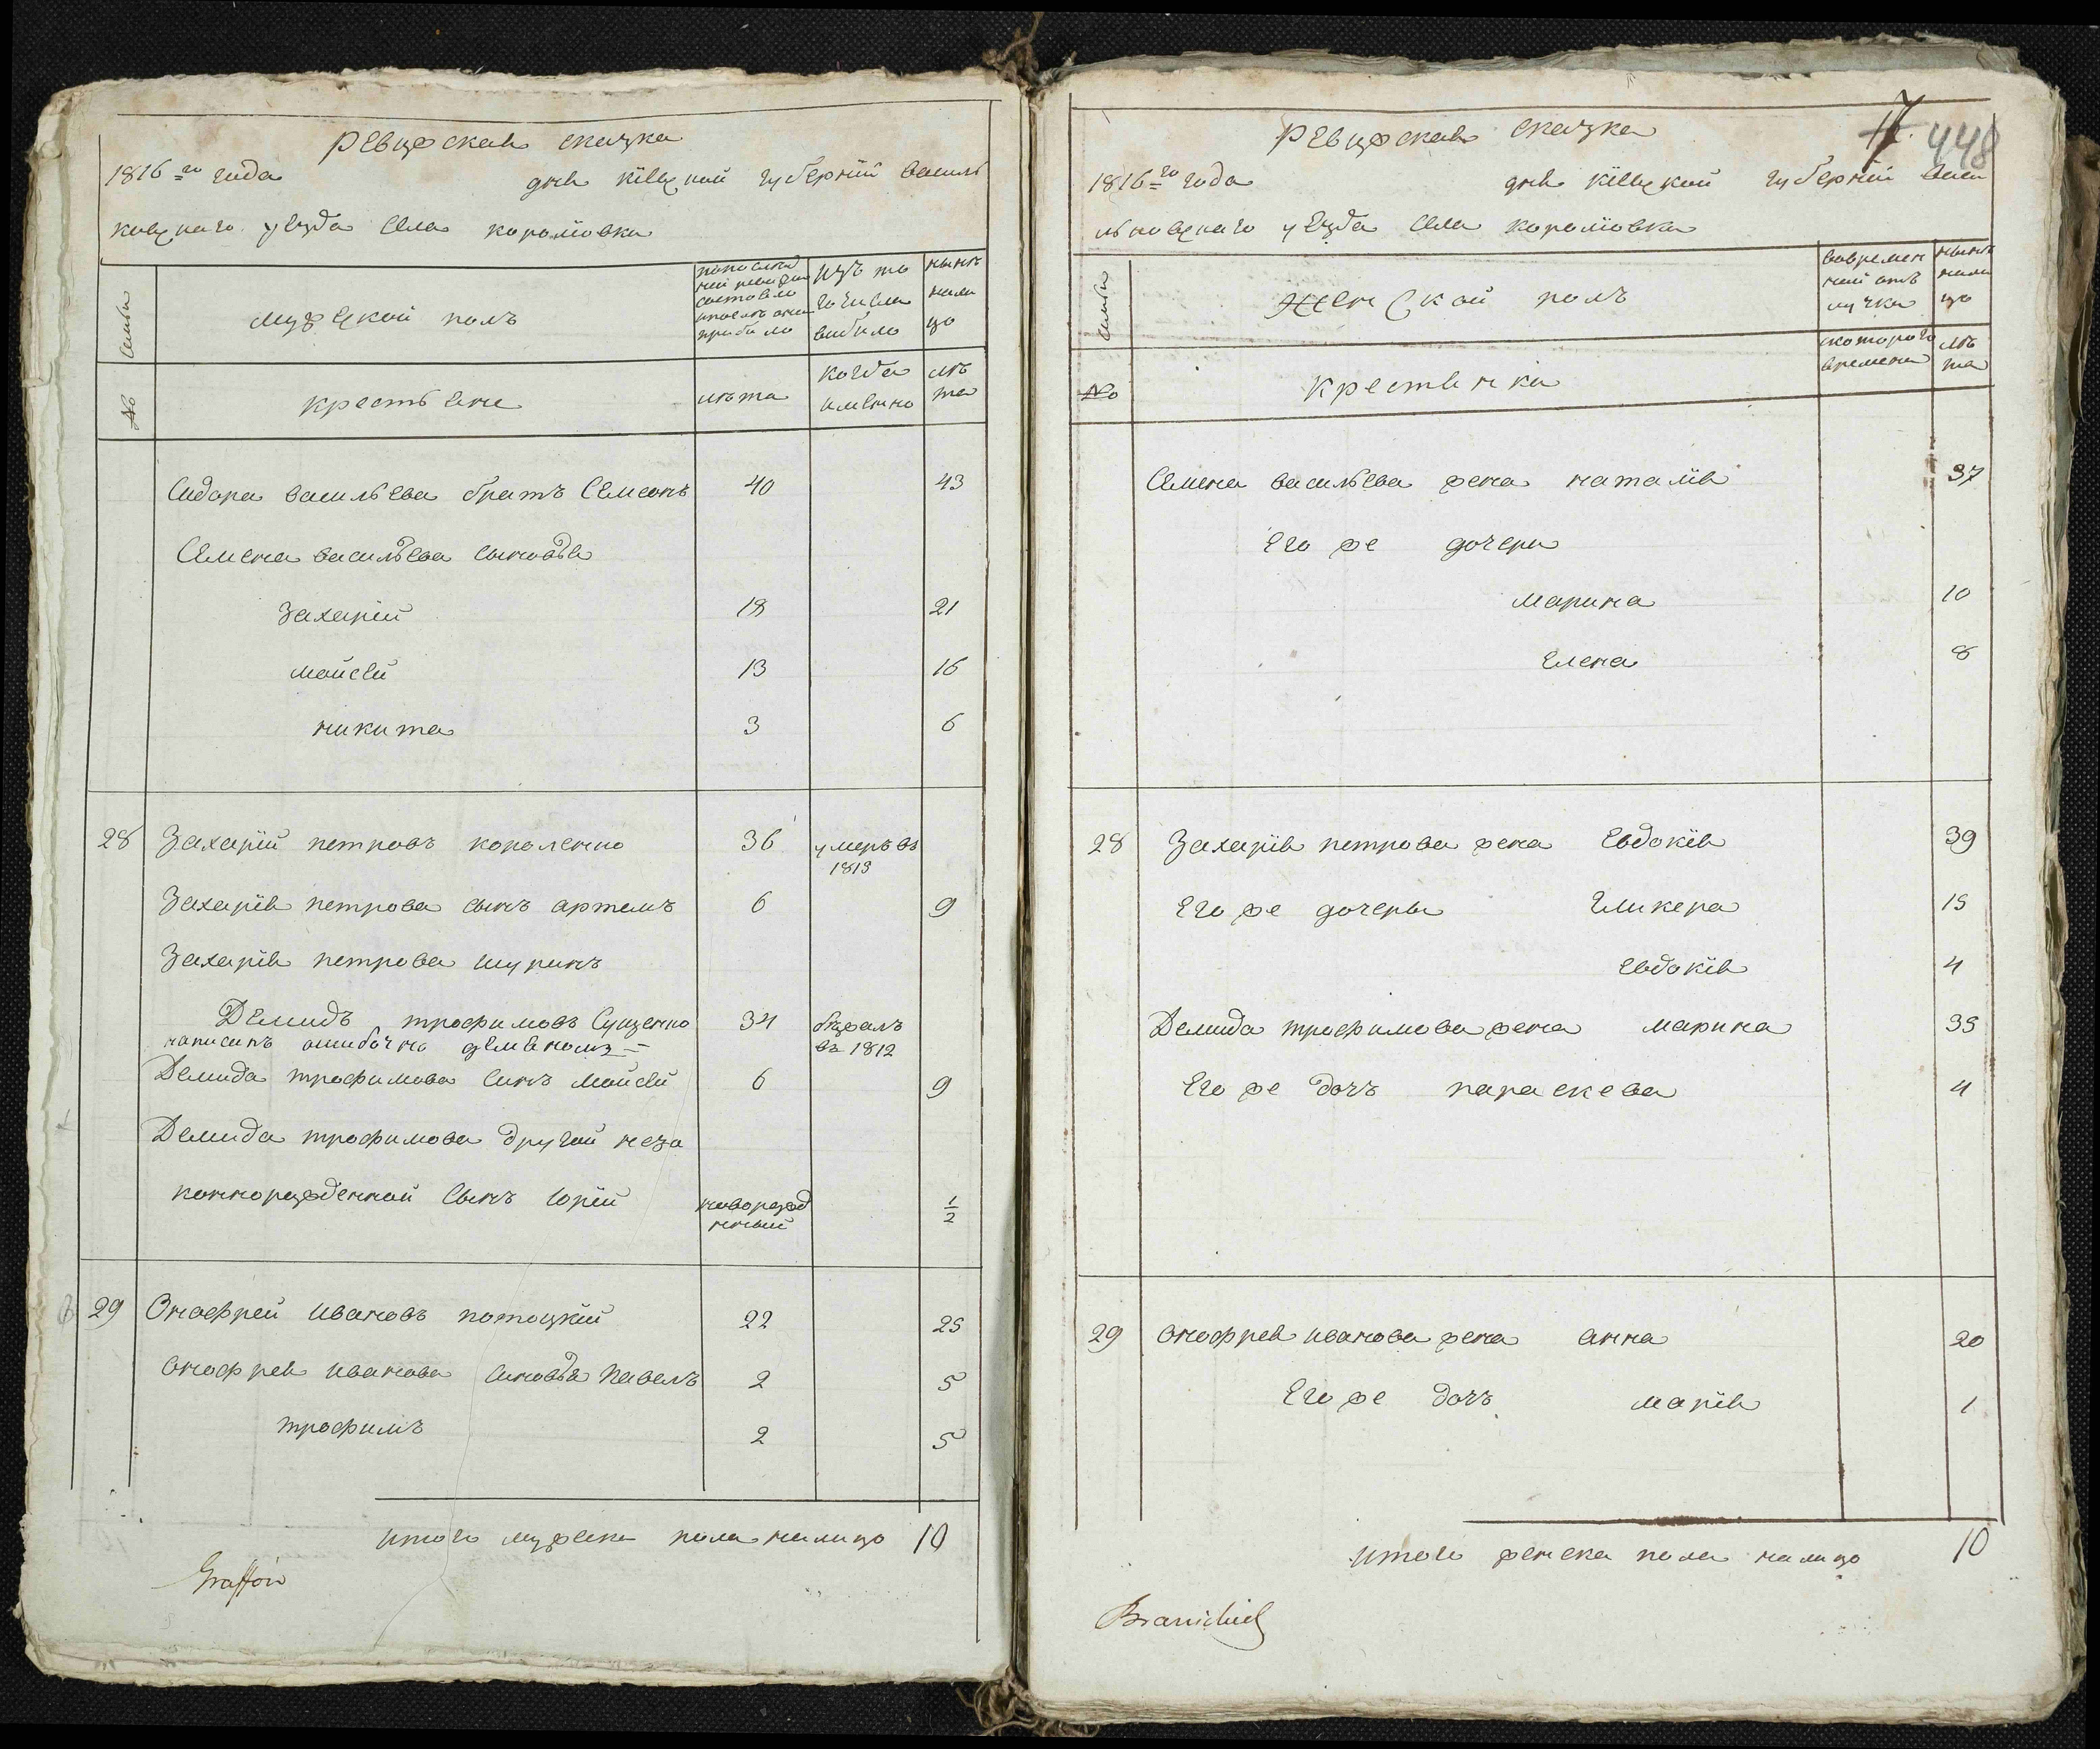 Ревизская сказка
1816=го года дня Кіевской губерніи василь
ковскаго уезда села королювки
семьи
мужеской полъ
по последней ревизіи состояло и после оной прибыло
изъ того числа выбыло
ныне на лицо
№
крестьяне
лѣта
когда именно
лѣта
Сидора васильева братъ Семенъ 40 43
Семена васильева сыновья
захарій 18 21
мойсей 13 16
никита 3 6
28 Захарій петровъ короленко 36 умеръ въ 1813
Захарія петрова сынъ артемъ 6 9
Захарія петрова шуринъ
Демидъ трофимовъ Сущенко 34 бежалъ въ 1812
написанъ ошибочно демяномъ=
Демида трофимова синъ мойсей 6 9
Демида трофимова другой неза
коннорожденной сынъ юрій новорожденный 1/2
29 Онофрей ивановъ потоцкій 22 25
онофрея иванова синовья павелъ 2 5
трофимъ 2 5
итого мужеска пола налицо 10
Graffow
17. 448
Ревизская сказка
1816=го года дня кіевской губерніи васи
льковскаго уезда села королювки
семьи
Женской полъ
во временной отлучке
ныне на лицо
№
крестьянки
с котораго времени
лѣта
Семена васильева жена наталія 37
его же дочери
марина 10
елена 8
28 Захарія петрова жена евдокія 39
его же дочеры гликера 15
евдокія 4
Демида трофимова жена марина 35
его же дочъ параскева 4
29 онофрея иванова жена анна 20
его же дочъ марія 1
итого женска пола налицо 10
Branicki